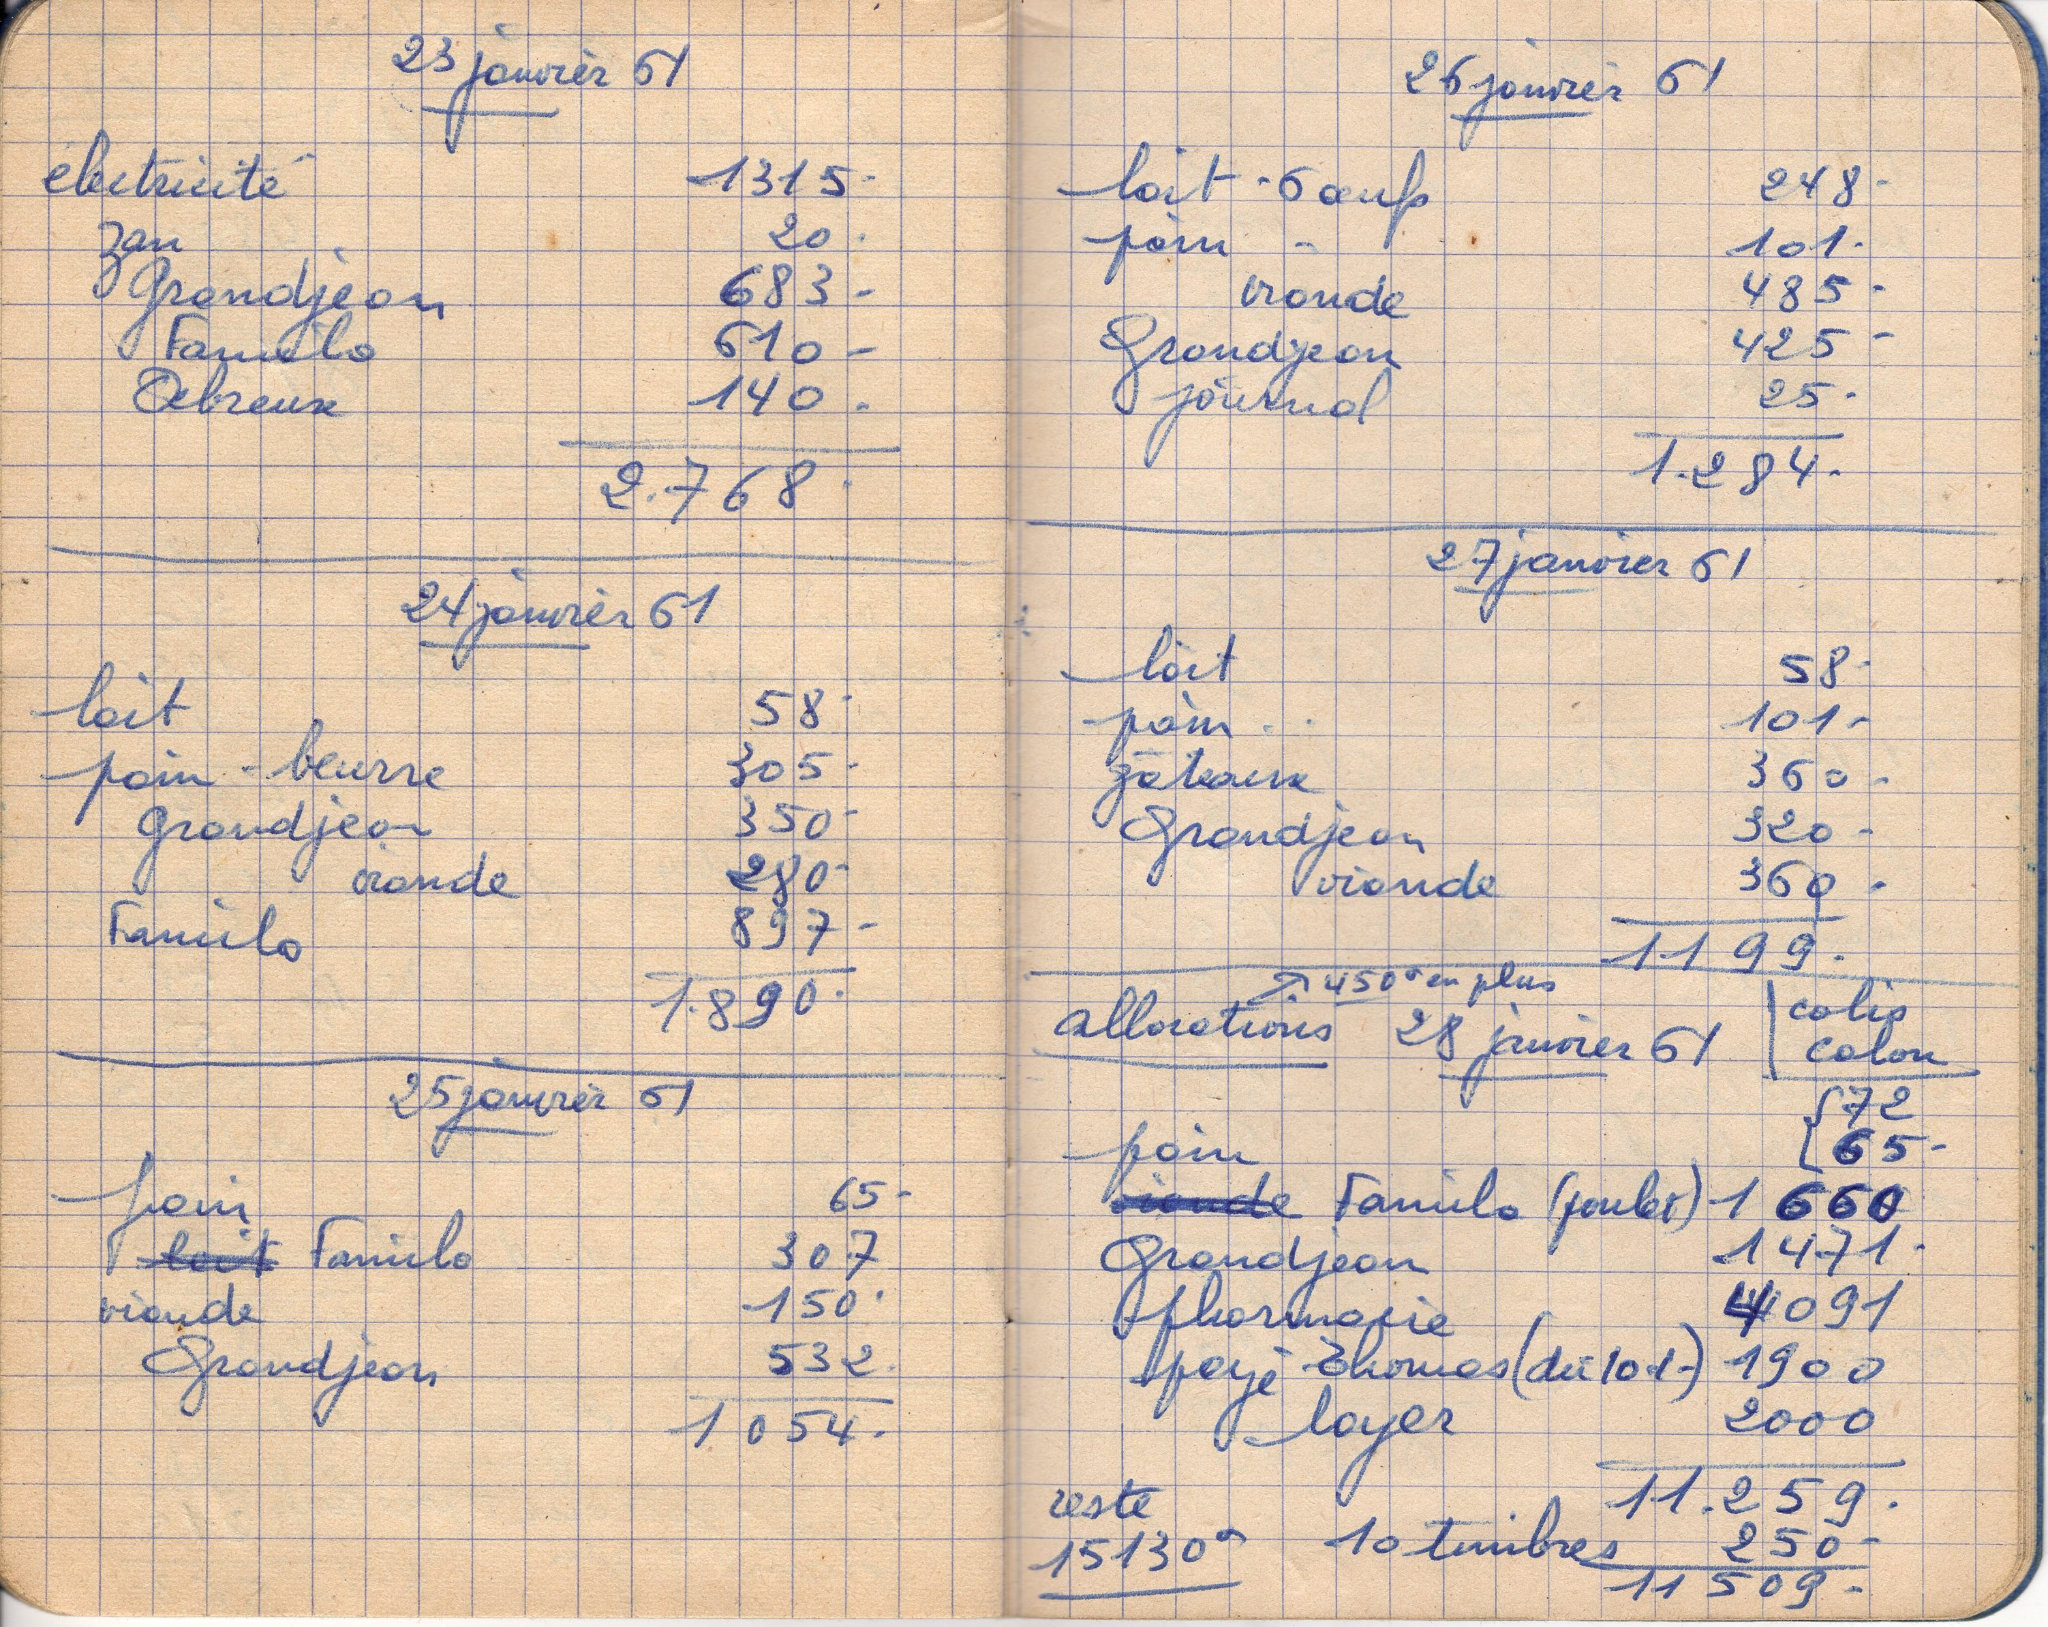 23 janvier 61
électricité 1315-
zan 20.
Grandjean 683-
Familo 610-
Debreux 140.
2.768.
24 janvier 61
lait 58-
pain - beurre 305-
Grandjean 350-
viande 280-
Familo 897-
1.890.
25 janvier 61
pain 65-
lait Familo 307
viande 150.
Grandjean 532.
1 054.
26 janvier 61
lait - 6 œufs 248-
pain - 101.
viande 485-
Grandjean 425-
journal 25.
1.284.
27 janvier 61
lait 58-
pain 101-
gâteaux 360-
Grandjean 320-
viande 360-
1199.
450 en plus
allocations 28 janvier 61 colis
colon
72
pain 65-
viande Familo (poulet) 1 660
Grandjean 1471.
pharmacie 4091
payé Thomas (du 10.1-) 1900
loyer 2000
11.259.
reste
15130 10 timbres 250-
11509-